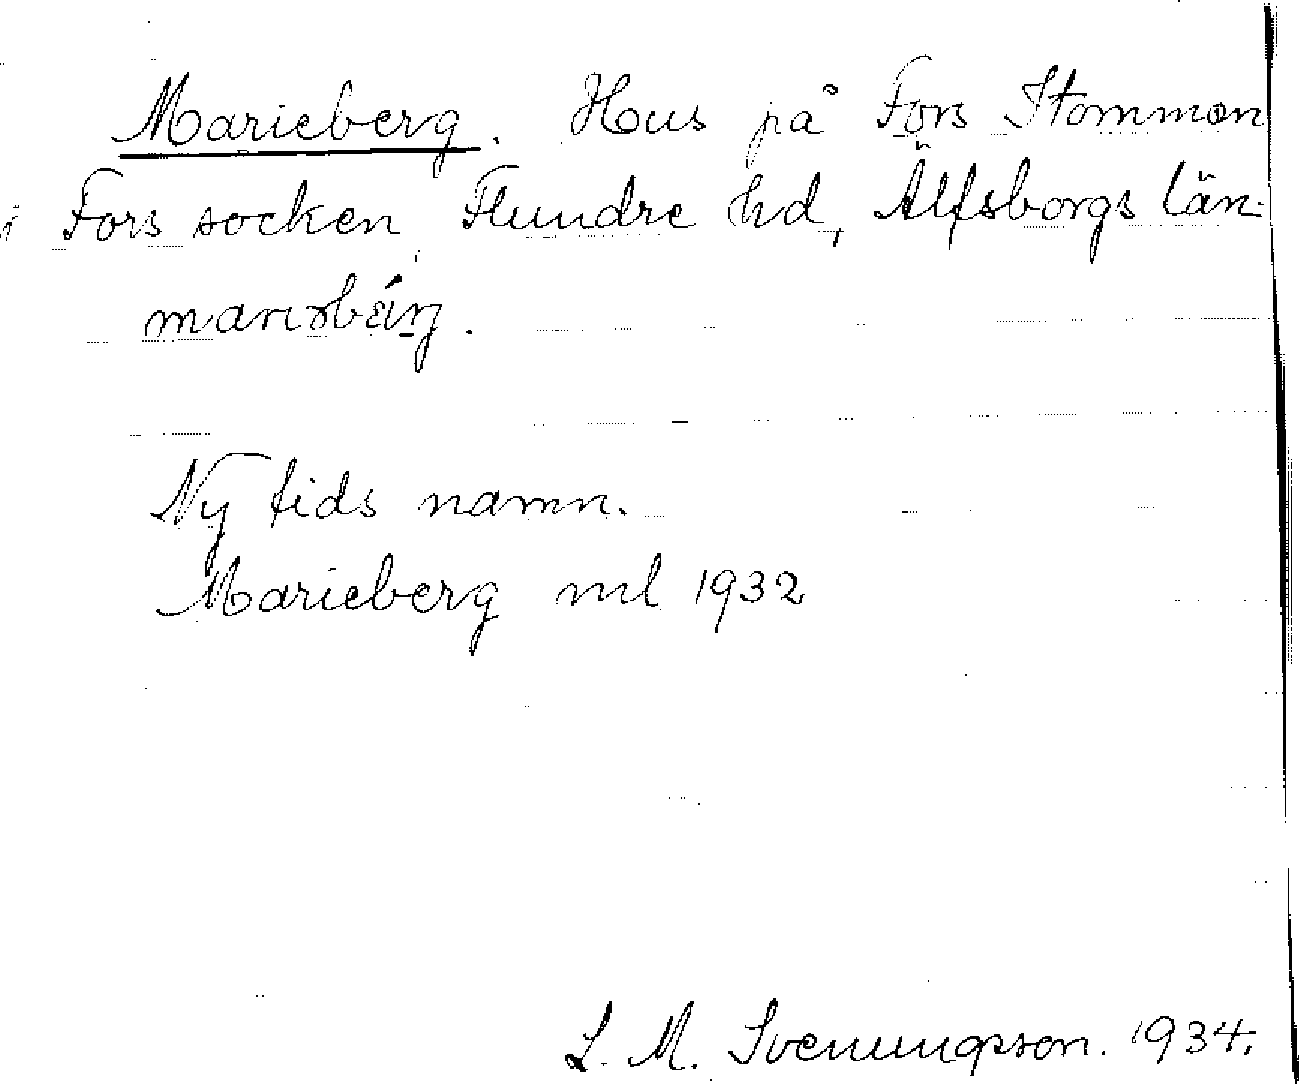 Marieberg. Hus på Fors Stommen
i Fors socken, Flundre hd, Älfsborgs län.
marɪəbǽrj.
Ny tids namn.
Marieberg ml 1932
L. M. Svenungsson. 1934.